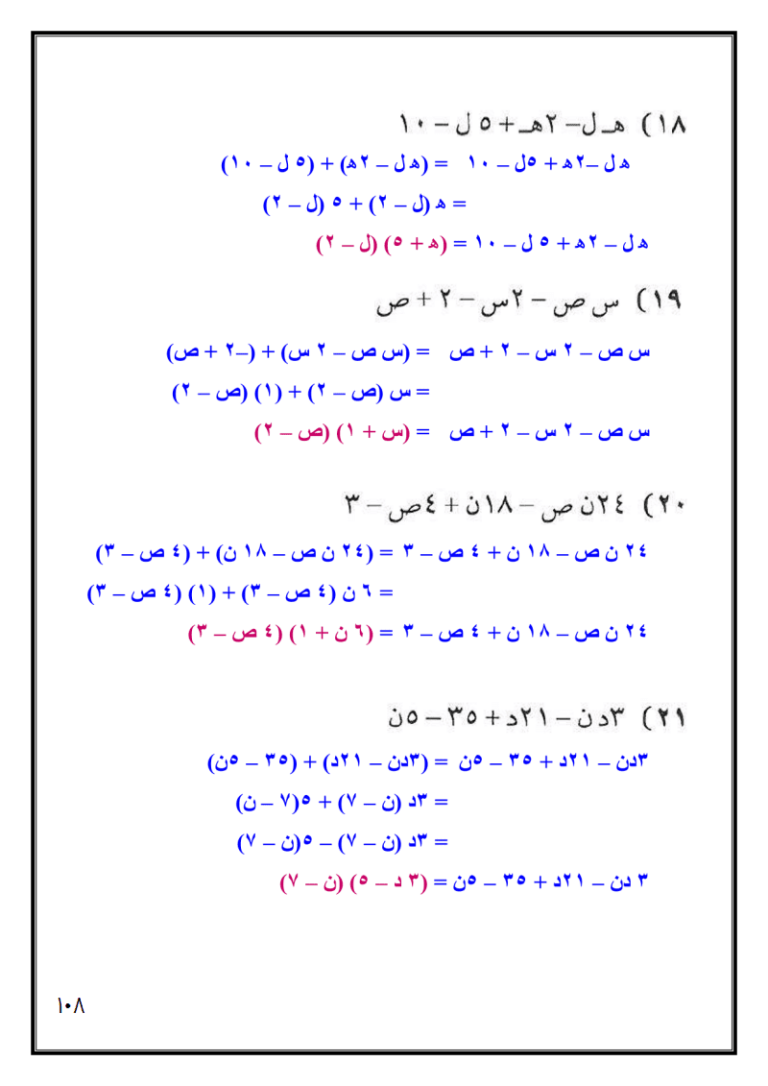 ١٨) هـ ل – ٢هـ + ٥ ل – ١٠
ه ل –٢ه + ٥ل – ١٠ = (ه ل – ٢ه) + (٥ ل – ١٠)
= ه (ل – ٢) + ٥ (ل – ٢)
ه ل – ٢ه + ٥ ل – ١٠ = (ه + ٥) (ل – ٢)
١٩) س ص – ٢س – ٢ + ص
س ص – ٢ س – ٢ + ص = (س ص – ٢ س) + (–٢ + ص)
= س (ص – ٢) + (١) (ص – ٢)
س ص – ٢ س – ٢ + ص = (س + ١) (ص – ٢)
٢٠) ٢٤ن ص – ١٨ن + ٤ص – ٣
٢٤ ن ص – ١٨ ن + ٤ ص – ٣ = (٢٤ ن ص – ١٨ ن) + (٤ ص – ٣)
= ٦ ن (٤ ص – ٣) + (١) (٤ ص – ٣)
٢٤ ن ص – ١٨ ن + ٤ ص – ٣ = (٦ ن + ١) (٤ ص – ٣)
٢١) ٣د ن – ٢١د + ٣٥ – ٥ن
٣دن – ٢١د + ٣٥ – ٥ن = (٣دن – ٢١د) + (٣٥ – ٥ن)
= ٣د (ن – ٧) + ٥(٧ – ن)
= ٣د (ن – ٧) – ٥(ن – ٧)
٣ دن – ٢١د + ٣٥ – ٥ن = (٣ د – ٥) (ن – ٧)
١٠٨